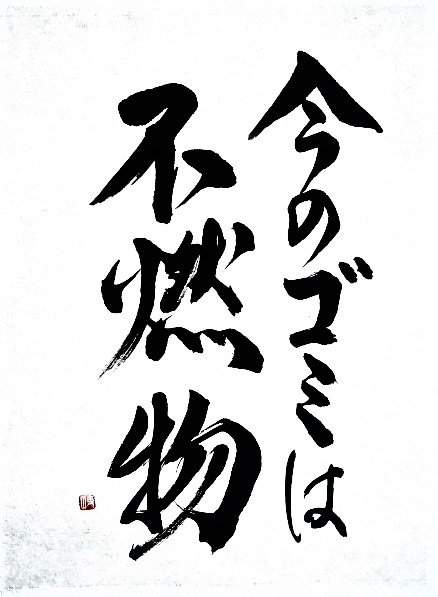 今のゴミは
不燃物